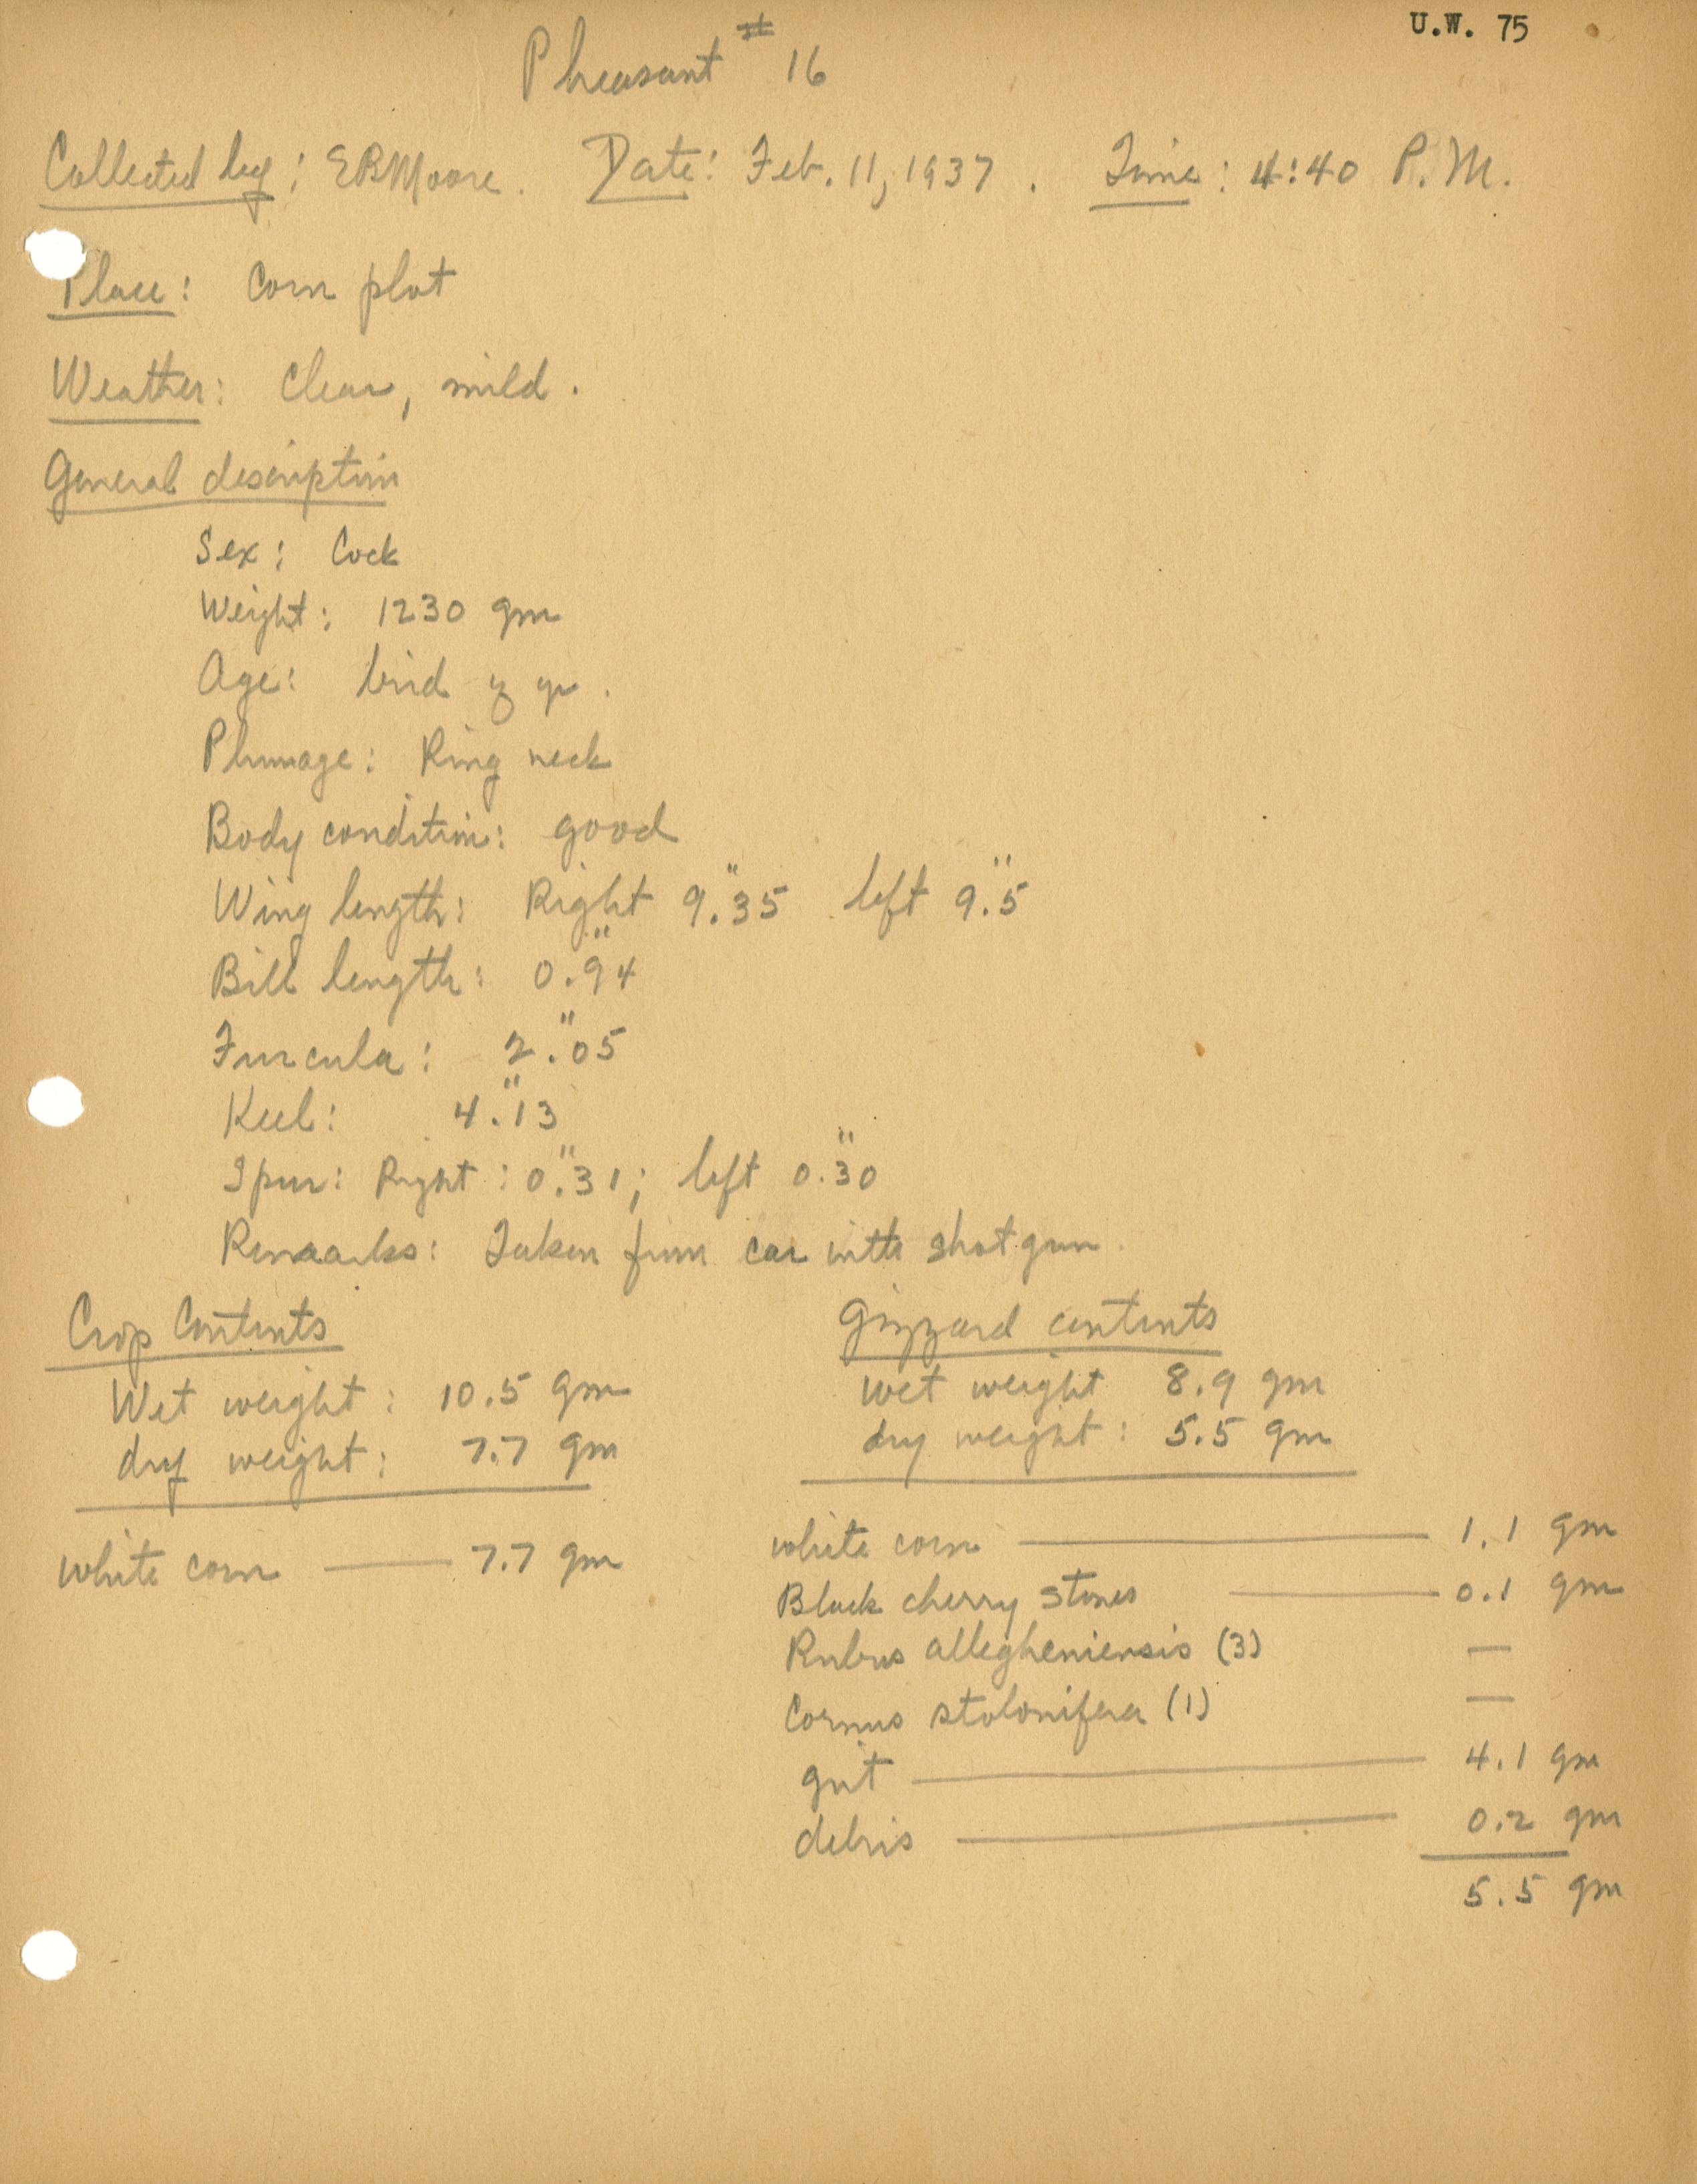 U.W. 75
Pheasant # 16
Collected by: ERMoore. Date: Feb. 11, 1937. Time: 4:40 P.M.
Place: Corn plot
Weather: Clear, mild.
General description
Sex: Cock
Weight: 1230 gm
Age: bird of yr.
Plumage: Ring neck
Body condition: good
Wing length: Right 9."35 left 9."5
Bill length: 0."94
Furcula: 2."05
Keel: 4."13
Spur: Right: 0."31; left 0."30
Remarks: Taken from car with shotgun.
Crop Contents
Wet weight: 10.5 gm
dry weight: 7.7 gm
white corn — 7.7 gm
Gizzard contents
wet weight 8.9 gm
dry weight: 5.5 gm
white corn — 1.1 gm
Black cherry stones — 0.1 gm
Rubus allegheniensis (3) —
Cornus stolonifera (1) —
grit — 4.1 gm
debris — 0.2 gm
5.5 gm